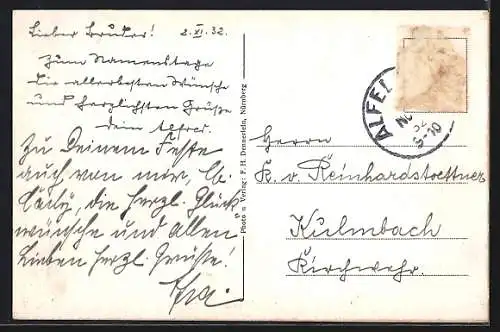 Lieber Bruder! 2. XI. 32.
Zum Namenstage
die allerbesten Wünsche
und herzlichsten Grüße
dein Alfred.
Zu Deinem Feste
auch von mir, lb.
die herzl. Glück-
wünsche und allen
Lieben herzl. Grüße!
Photo u. Verlag: F. H. Dennerlein, Nürnberg
ALFE
NO
32
Herrn
K. v. Reinhardstoettner
Kulmbach
Kirchwehr.